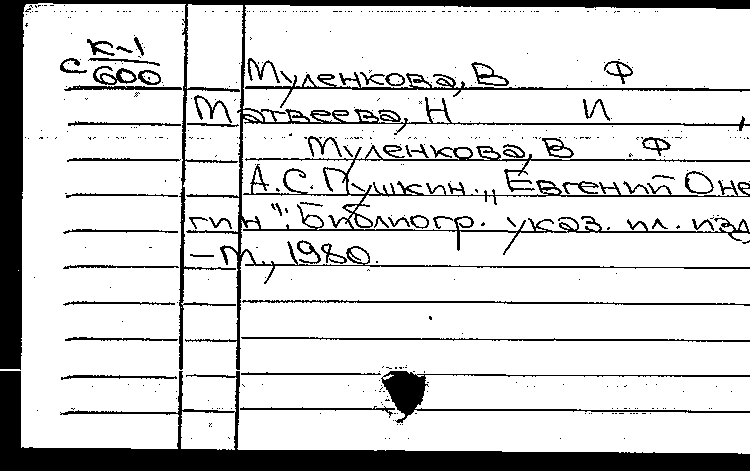 с К-1/600
Муленкова, В Ф
Матвеева, Н И ,
Муленкова, В . Ф
А.С. Пушкин. „Евгений Оне
гин": Библиогр. указ. ил. изд.
-М., 1980.